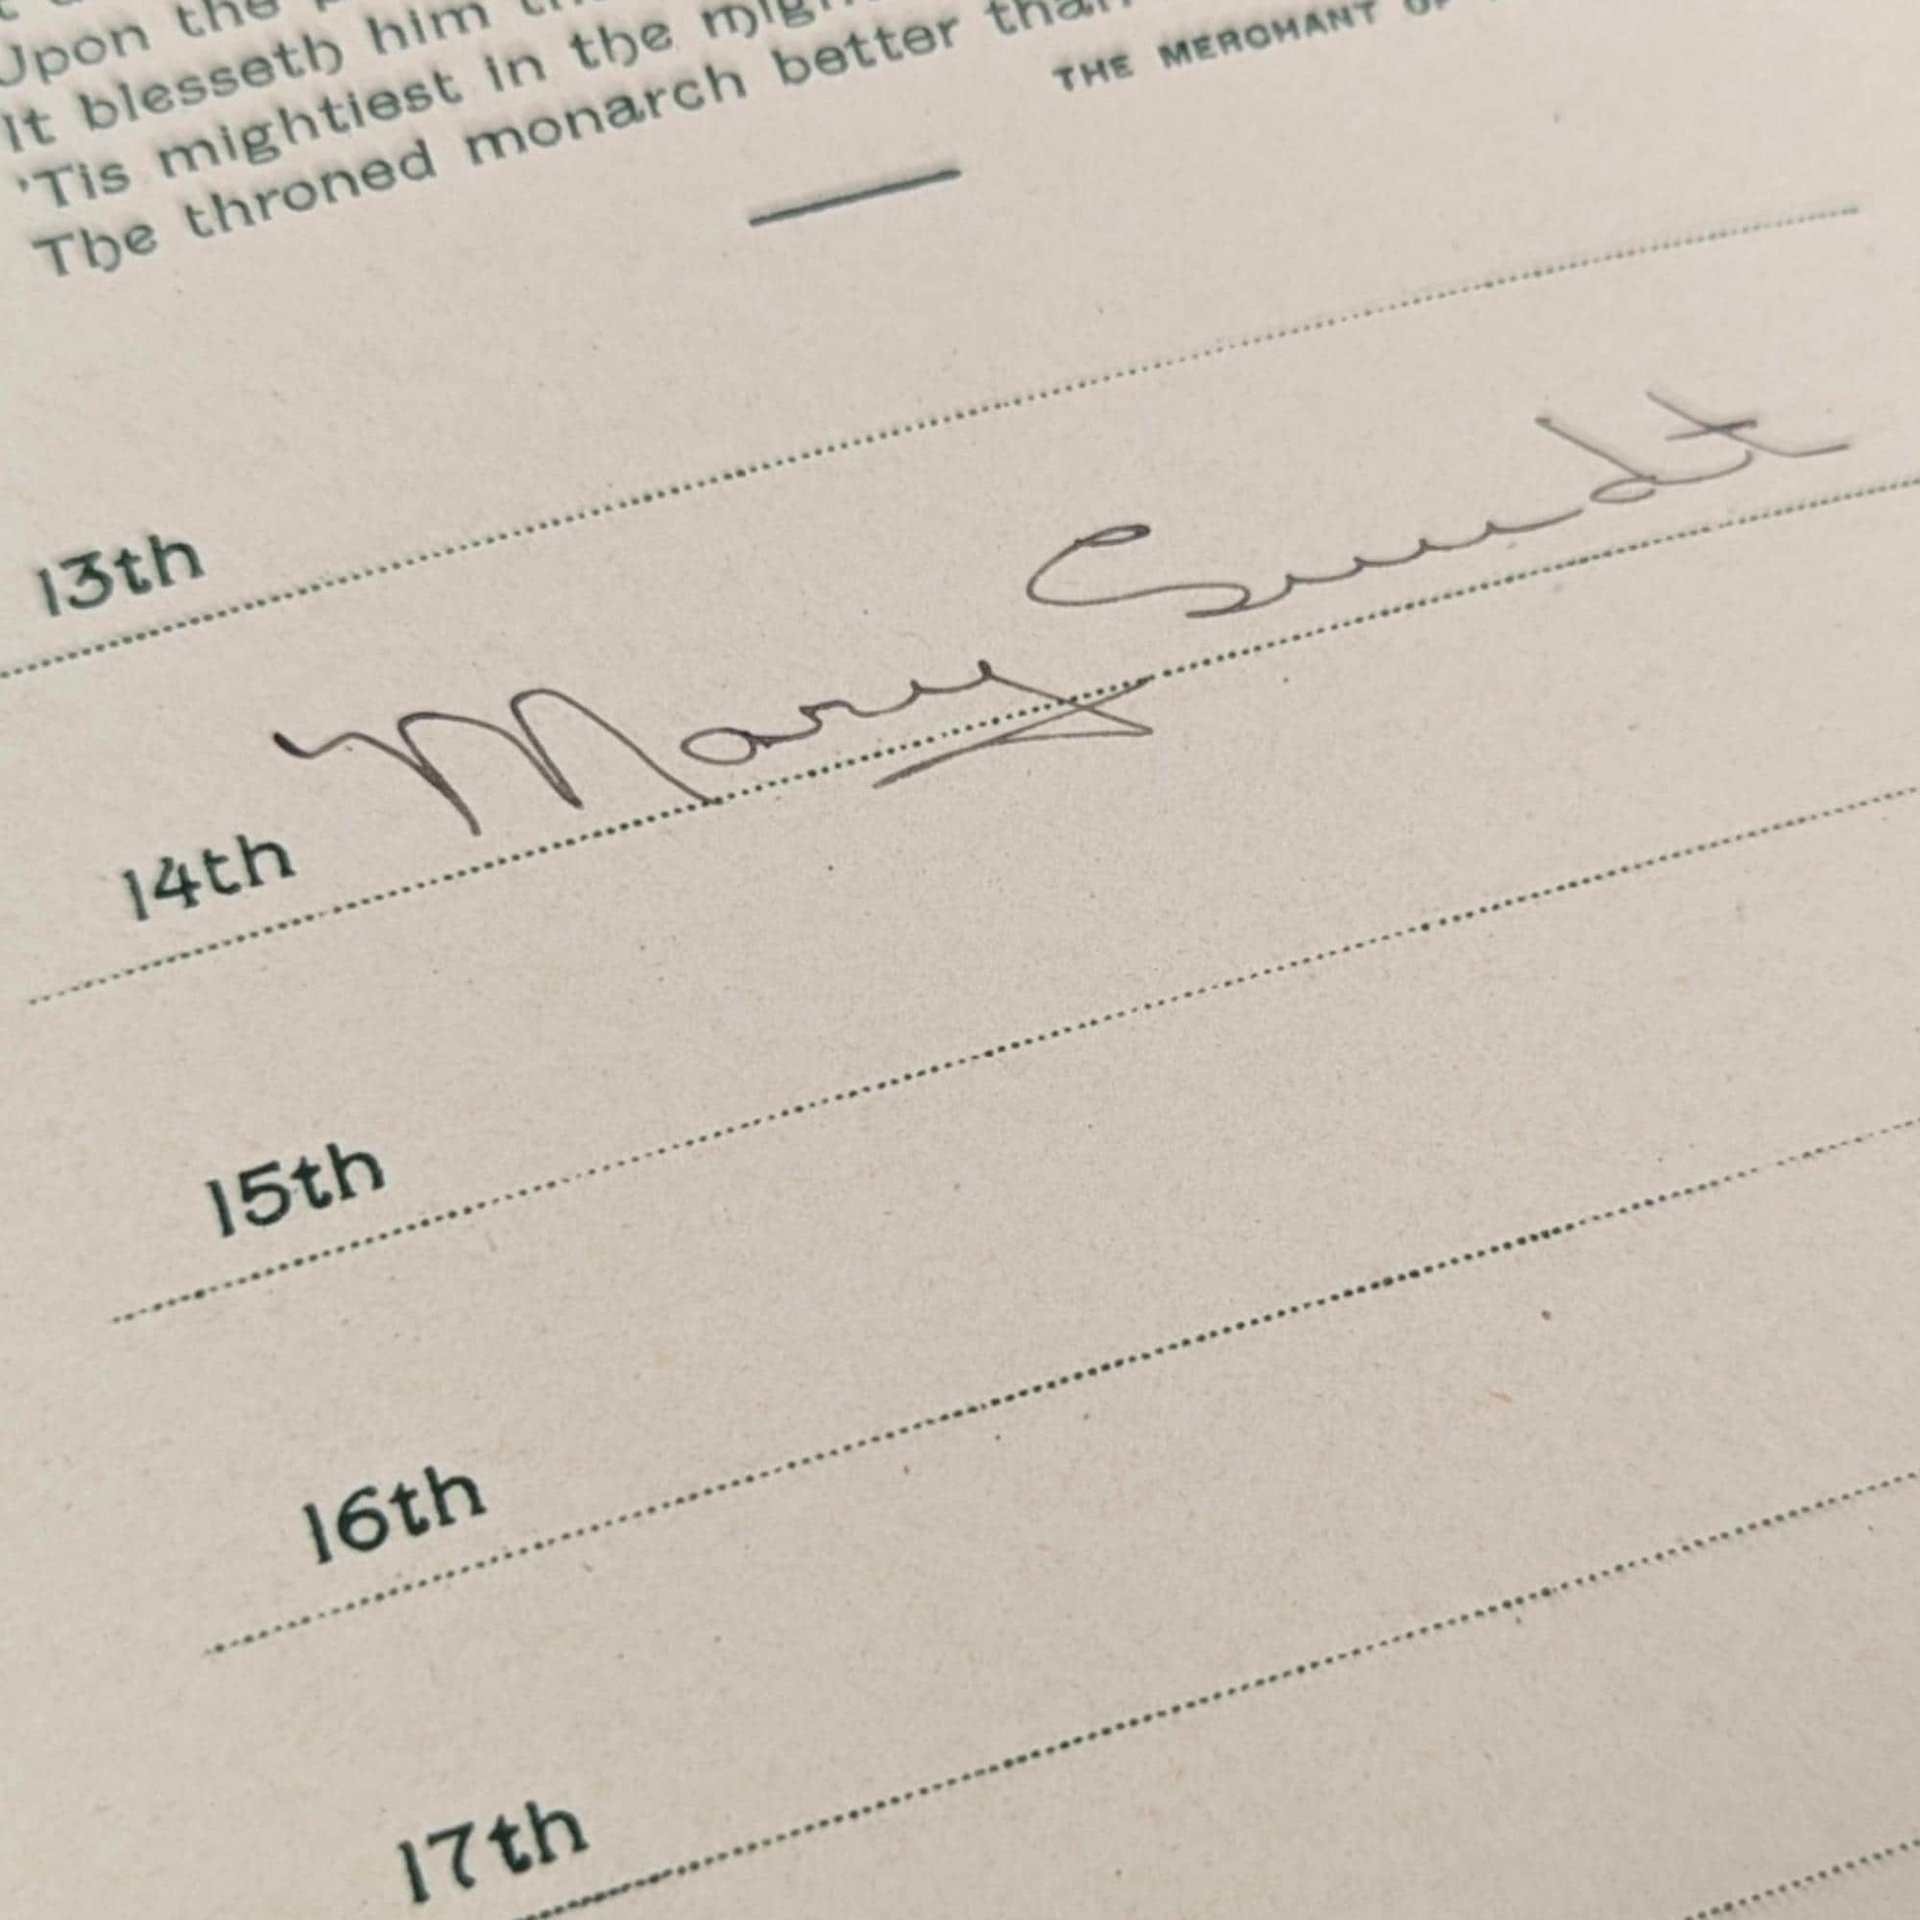 Upon the
It blesseth him
'Tis mightiest in the
The throned monarch better than
THE MERCHANT OF
13th
14th Mary Gundt
15th
16th
17th